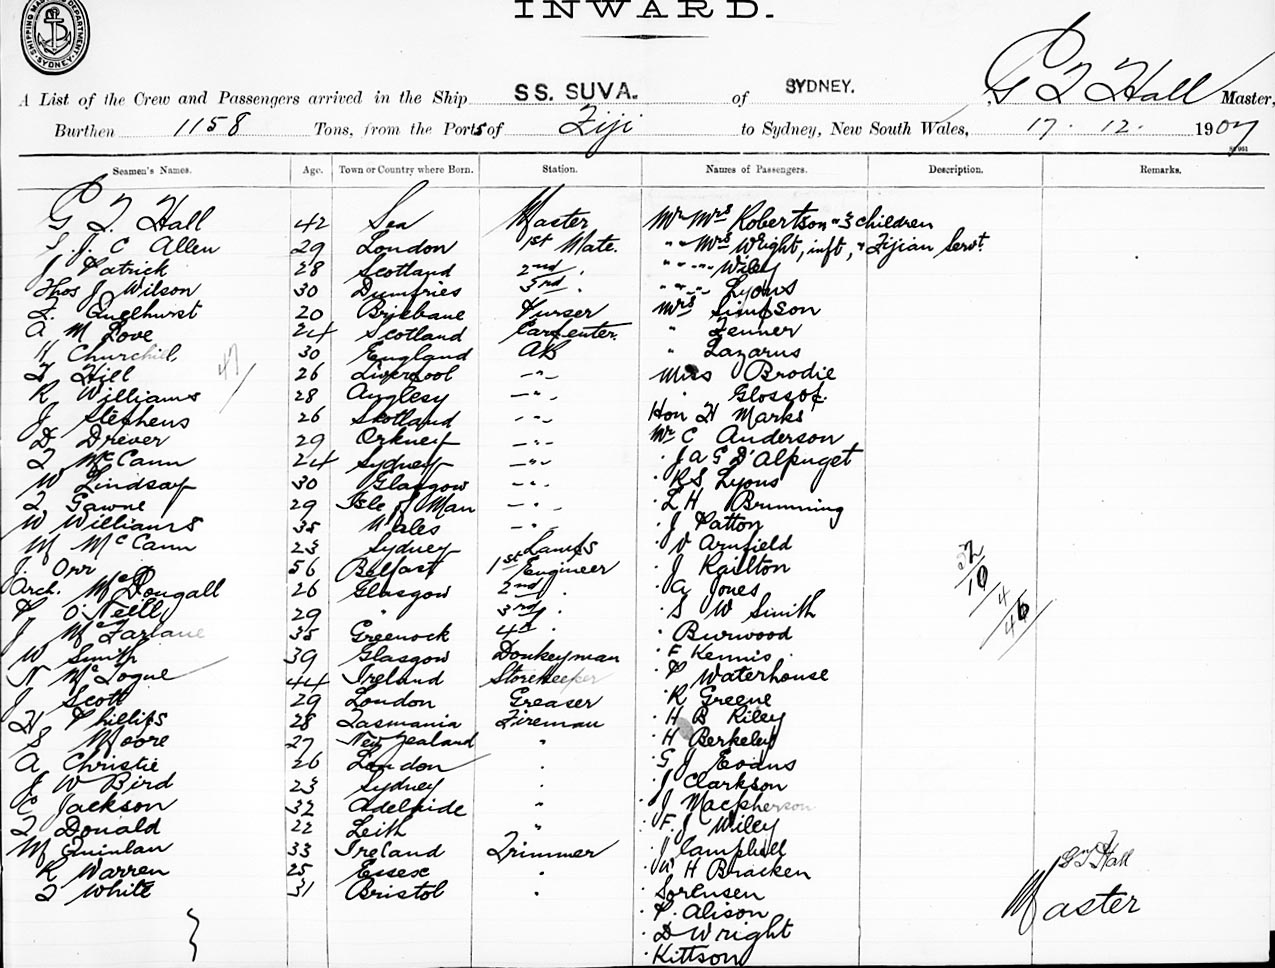 INWARD.
SHIPPING MASTERS DEPARTMENT SYDNEY
A List of the Crew and Passengers arrived in the Ship SS. SUVA. of SYDNEY. G T Hall Master,
Burthen 1158 Tons, from the Ports of Fiji to Sydney, New South Wales, 17. 12. 1907
Seamen's Names. Age. Town or Country where Born. Station. Names of Passengers. Description. Remarks.
G T. Hall 42 Sea Master Mr Mrs Robertson & 3 children
J. C Allen 29 London 1st Mate. " " Mrs Wright, inft, & Fijian Servt.
J Patrick 28 Scotland 2nd . " " " " Wiley
Thos J Wilson 30 Dumfries 3rd . " " " Lyons
20 Brisbane Purser Mrs Simpson
A M Love 24 Scotland Carpenter. " Fenner
H Churchill 30 England AB " Lazarus
47
T Hill 26 Liverpool -"- Miss Brodie
R Williams 28 Anglesy -"- . Glossop.
J Stephens 26 Skotland -"- Hon H Marks
D Drever 29 Orkney -"- Mr C Anderson
T McCann 24 Sydney -"- . J A G D'Alpuget
W Lindsay 30 Glasgow -"- . R S Lyons
T Gawne 29 Isle of Man -"- . L H Brunning
W Williams 35 Wales -"- . J Patton
M McCann 23 Sydney Lamps . V Armfield
J. Orr 56 Belfast 1st Engineer . J Railton
Arch. McDougall 26 Glasgow 2nd . . A Jones
P O'Neill 29 " 3rd . . S W Smith
J McFarlane 35 Greenock 4th . . Burwood
W Smith 39 Glasgow Donkeyman . F Kennis
N McLogue 44 Ireland Storekeeper . P Waterhouse
J Scott 29 London Greaser . R Greene
H Phillips 28 Tasmania Fireman . H B Riley
S Moore 27 New Zealand " . H Berkeley
A Christie 26 London . . G J Evans
J W Bird 23 Sydney . . J Clarkson
C Jackson 32 Adelaide " . J Macpherson
T Donald 22 Leith " . F. J Wiley
M Quinlan 33 Ireland Trimmer . J Campbell
R Warren 25 Essex . . W H Bracken
T White 31 Bristol . . Sorensen
. P. Alison
. D Wright
. Kittson
32
10
4
46
G T Hall
Master